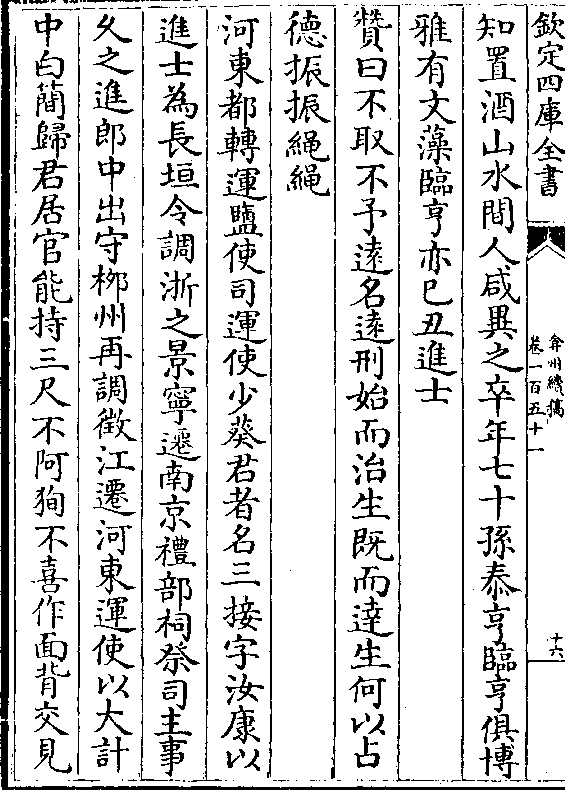 欽定四庫全書
弇州續稿
卷一百五十一
十六
知置酒山水間人咸異之卒年七十孫泰亨臨亨俱博
雅有文藻臨亨亦已丑進士
贊曰不取不予遠名遠刑始而治生既而達生何以占
德振振繩繩
河東都轉運鹽使司運使少葵君者名三接字汝康以
進士為長垣令調浙之景寧遷南京禮部祠祭司主事
乆之進郎中出守栁州再調徴江遷河東運使以大計
中白簡歸君居官能持三尺不阿狥不喜作面背交見